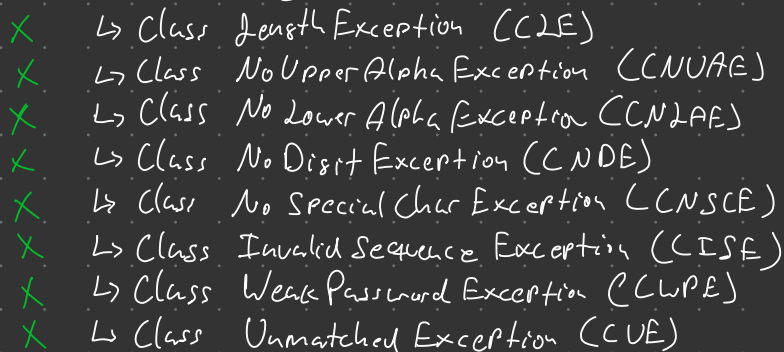 X ↳ Class Length Exception (CLE)
X ↳ Class No Upper Alpha Exception (CNUAE)
X ↳ Class No Lower Alpha Exception (CNLAE)
X ↳ Class No Digit Exception (CNDE)
X ↳ Class No Special Char Exception (CNSCE)
X ↳ Class Invalid Sequence Exception (CISE)
X ↳ Class Weak Password Exception (CWPE)
X ↳ Class Unmatched Exception (CUE)